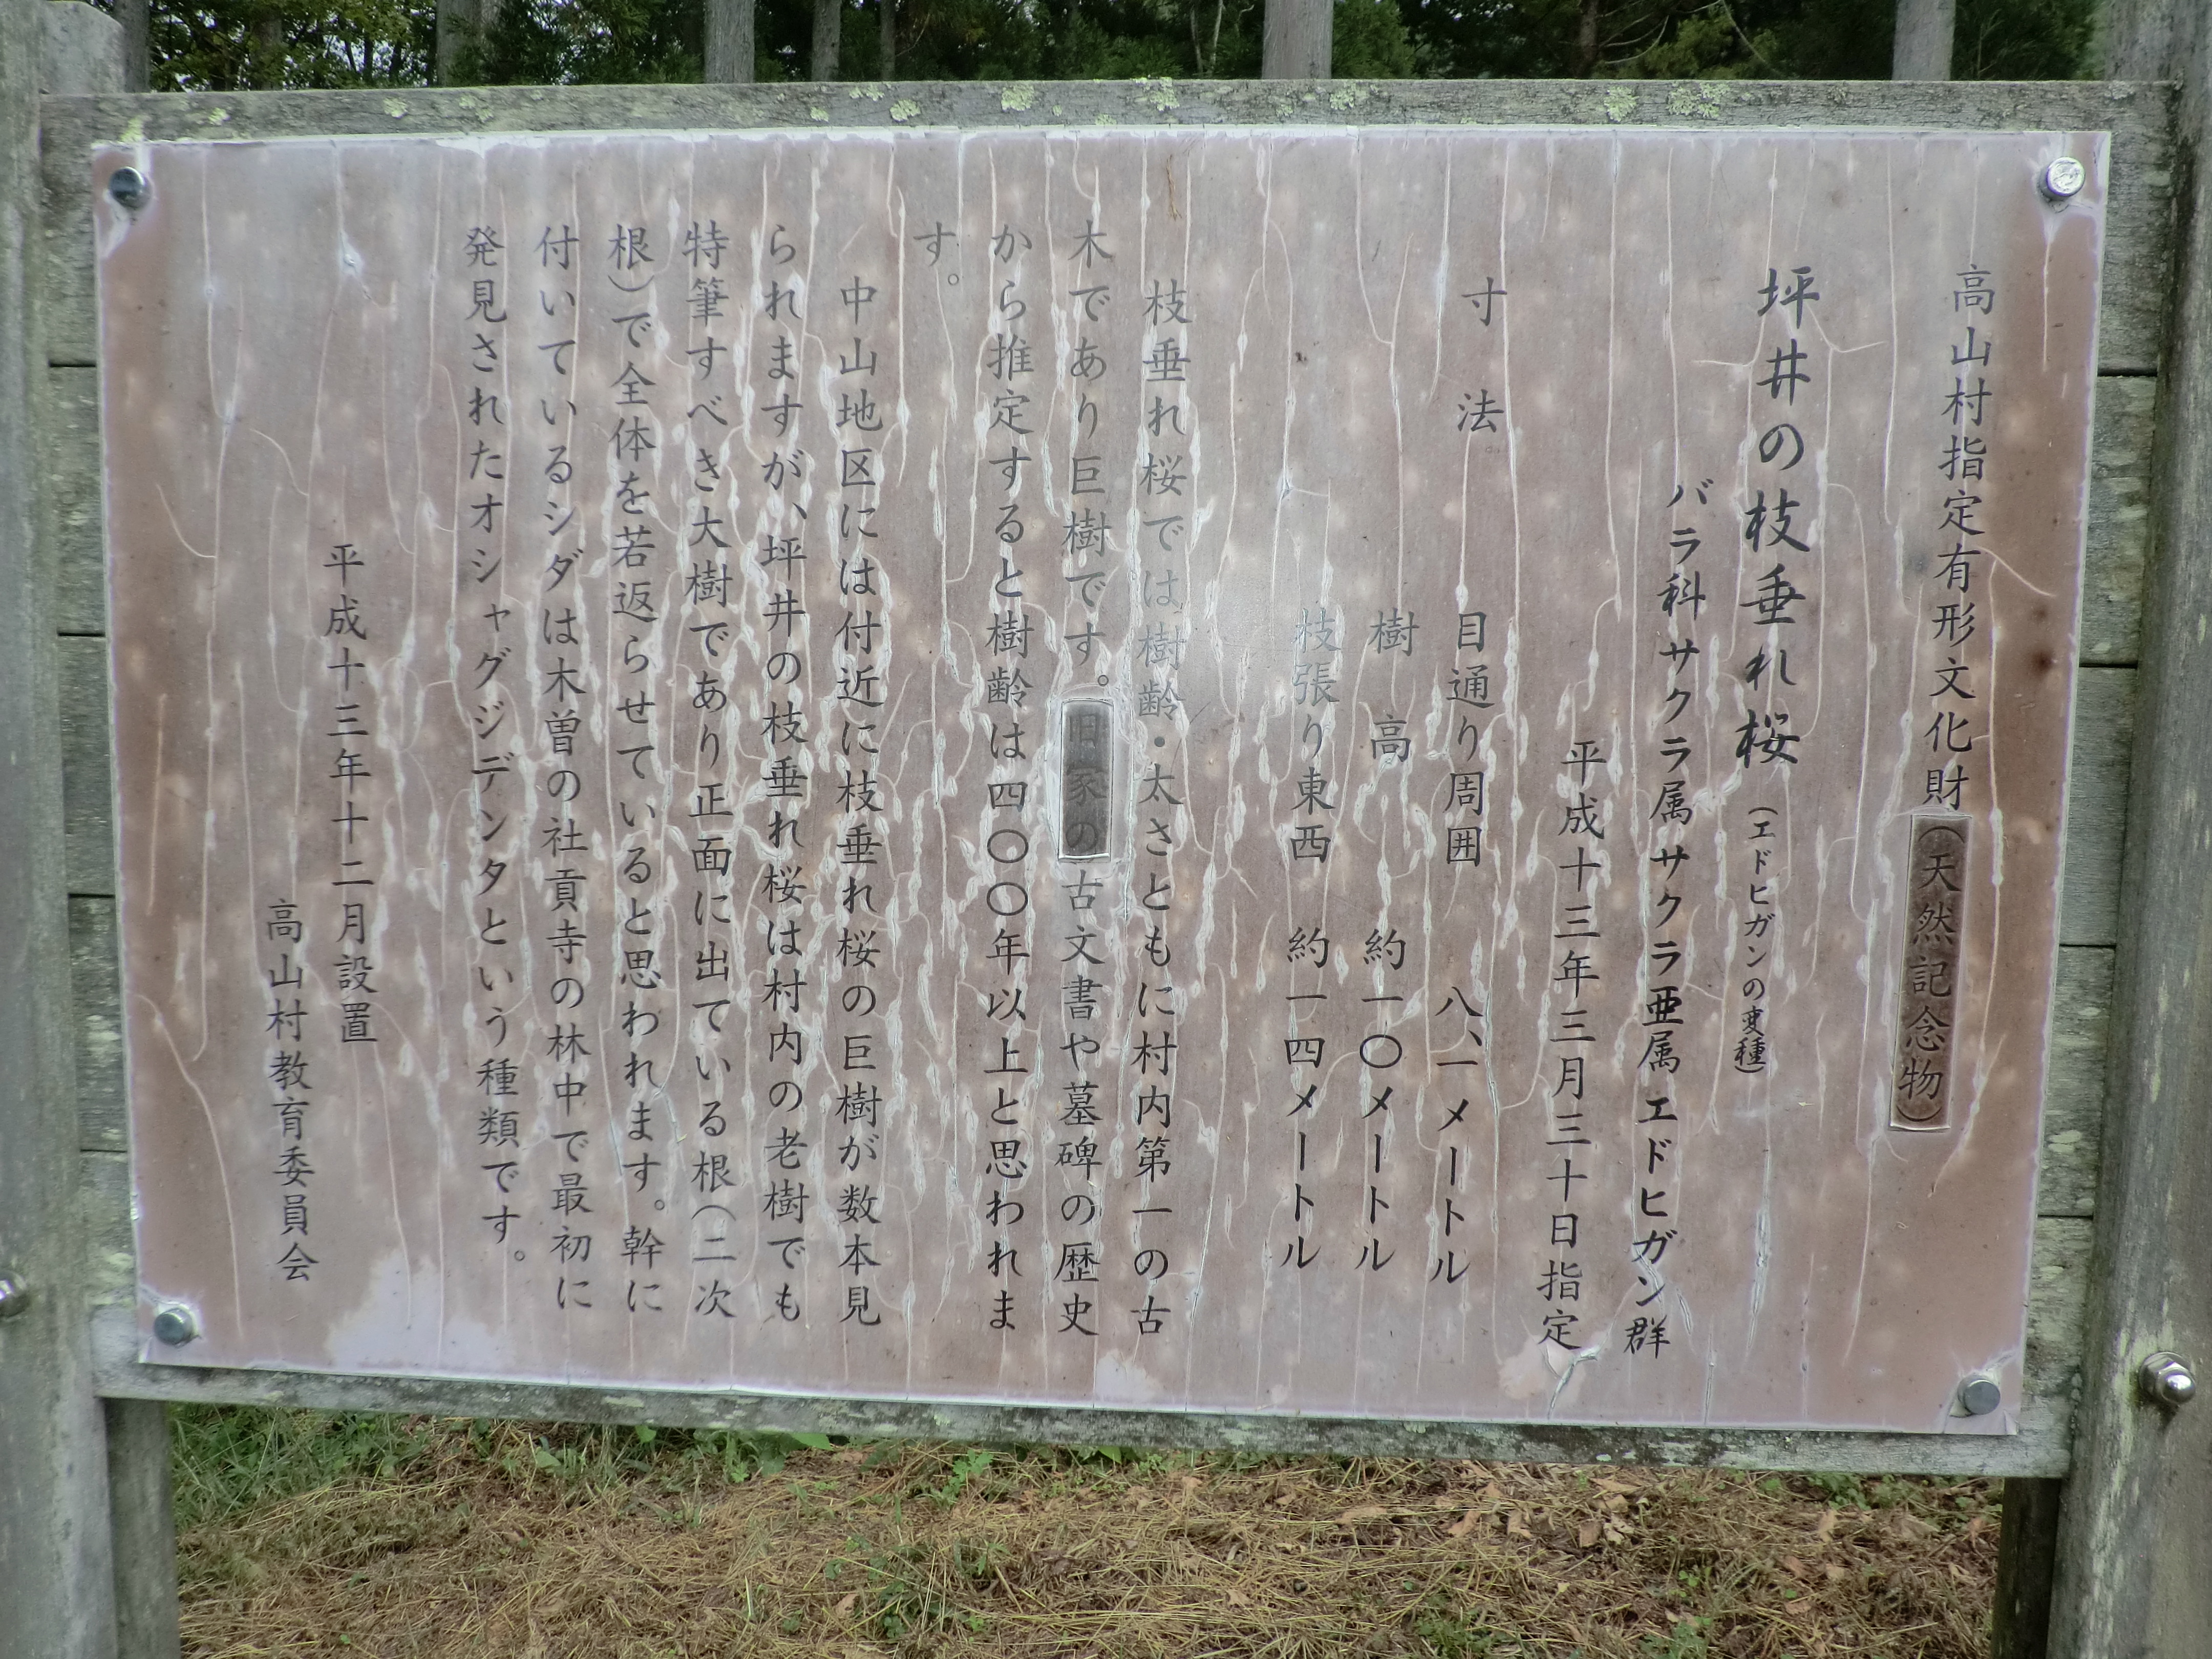 高山村指定有形文化財(天然記念物)
坪井の枝垂れ桜(エドヒガンの変種)
バラ科サクラ属サクラ亜属エドヒガン群
平成十三年三月三十日指定
寸法。目通り周囲 八、一メートル
樹高 約一〇メートル
枝張り東西 約一四メートル
枝垂れ桜では樹齢・太さともに村内第一の古
木であり巨樹です。旧家の古文書や墓碑の歴史
から推定すると樹齢は四〇〇年以上と思われま
す。
中山地区には付近に枝垂れ桜の巨樹が数本見
られますが、坪井の枝垂れ桜は村内の老樹でも
特筆すべき大樹であり正面に出ている根(二次
根)で全体を若返らせていると思われます。幹に
付いているシダは木曽の社貢寺の林中で最初に
発見されたオシャグジデンタという種類です。
平成十三年十二月設置
高山村教育委員会